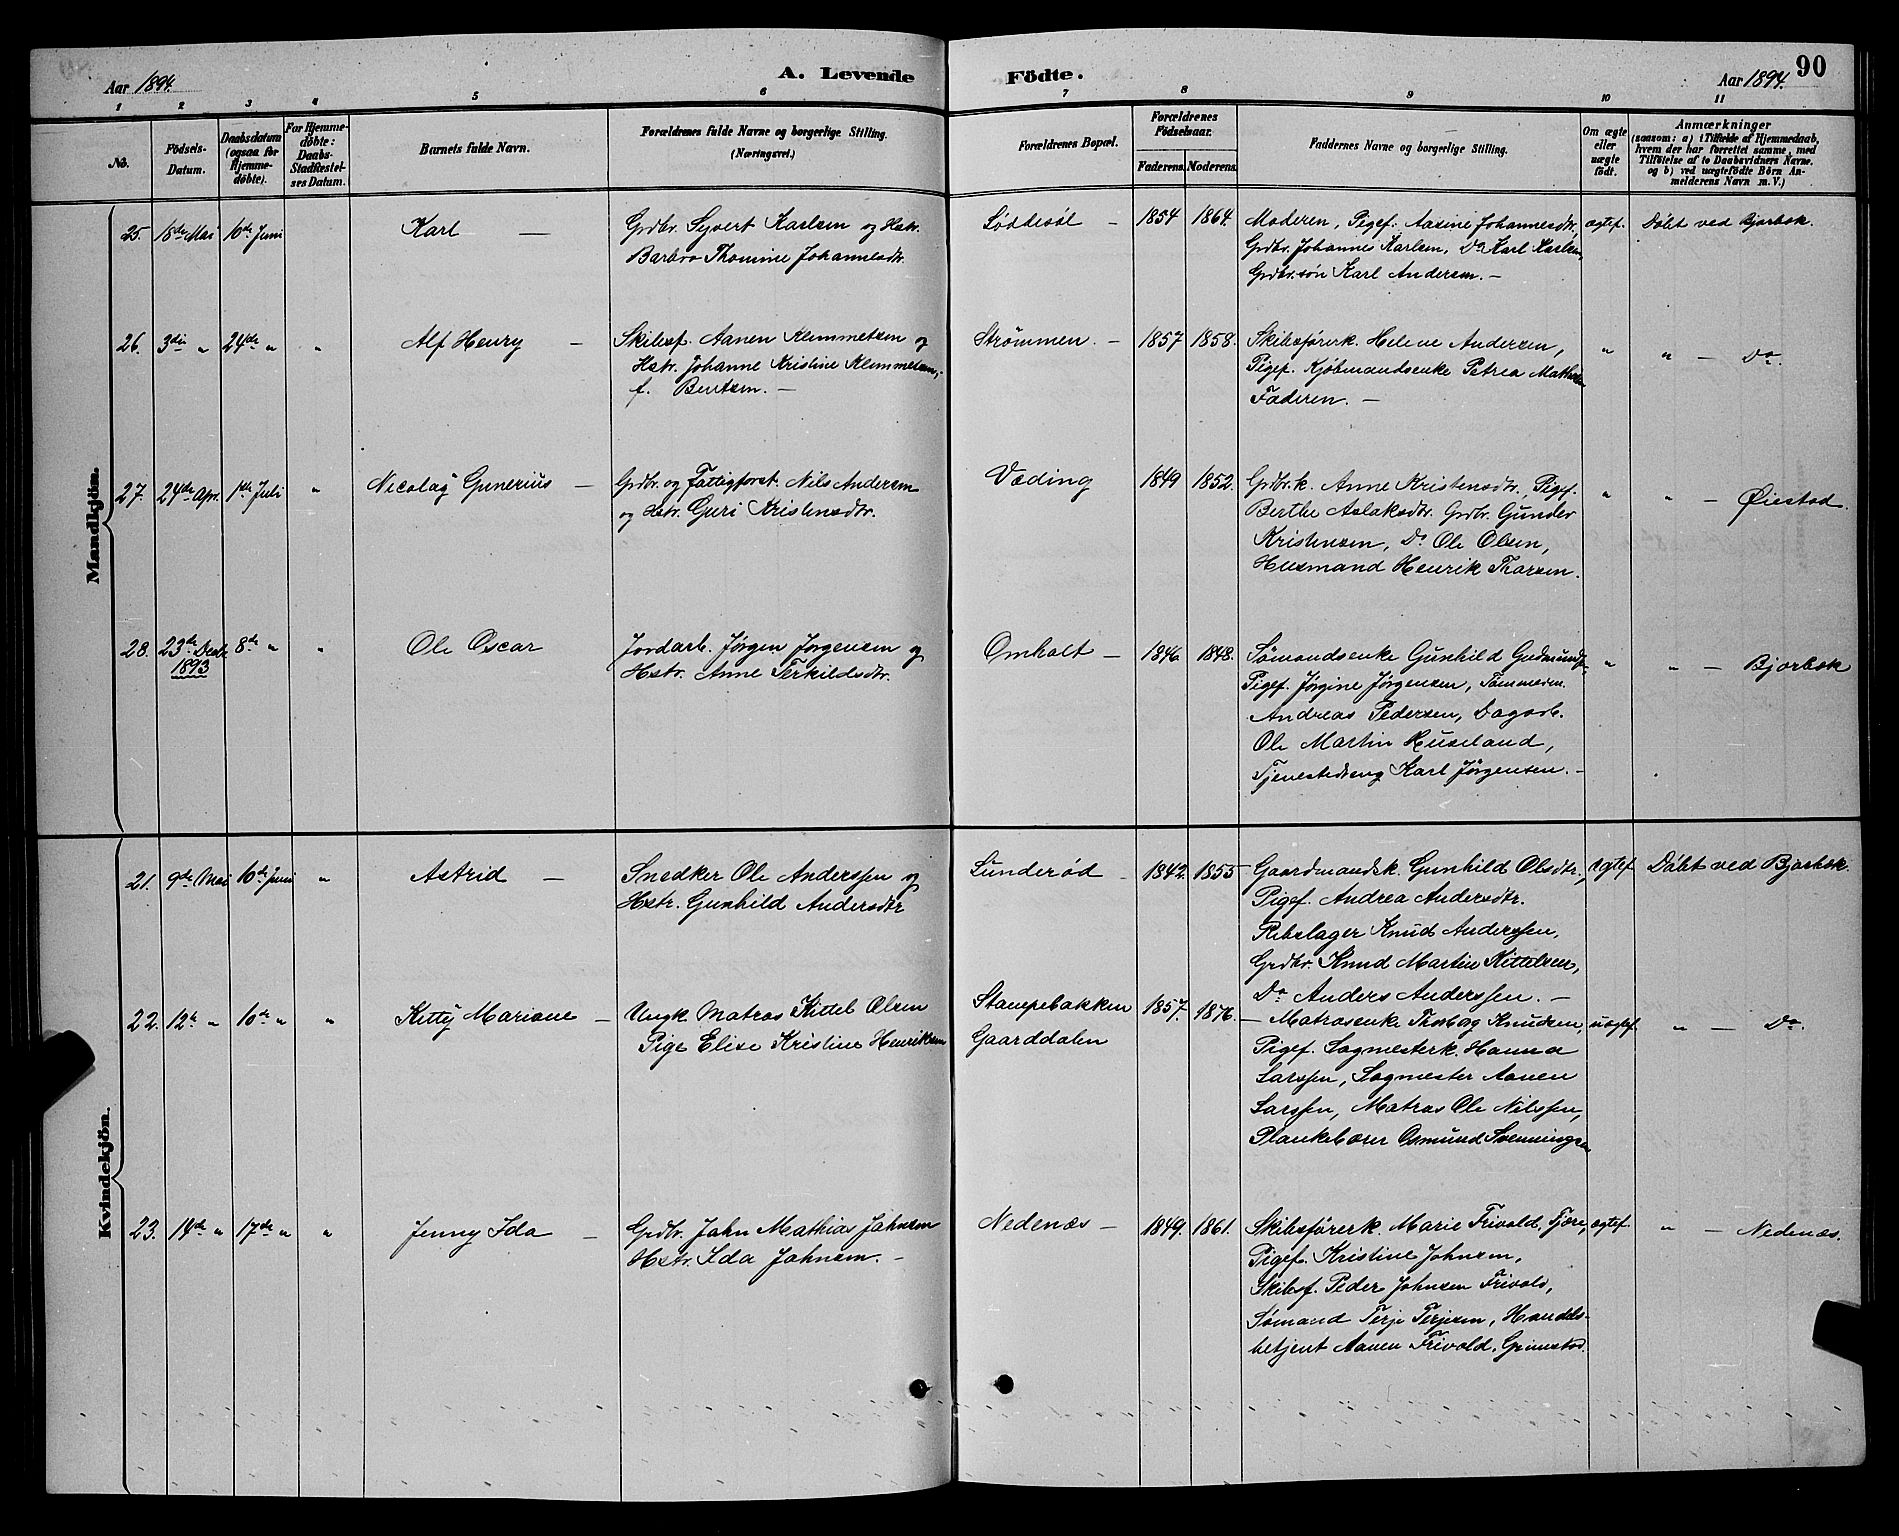 Aar 1894.
A. Levende Födte.
Aar 1894.
90
1 2 3 4 5 6 7 8 9 10 11
No.
Födsels-Datum.
Daabsdatum (ogsaa for Hjemme-döbte).
For Hjemme-döbte: Daabs-Stadfæstel-ses Datum.
Barnets fulde Navn.
Forældrenes fulde Navne og borgerlige Stilling. (Næringsvei.)
Forældrenes Bopæl.
Forældrenes Födselsaar.
Faderens. Moderens.
Faddernes Navne og borgerlige Stilling.
Om ægte eller uægte födt.
Anmærkninger (saasom: a) i Tilfælde af Hjemmedaab, hvem der har forrettet samme, med Tilföielse af to Daabsvidners Navne. og b) ved uægtefödte Börn An-melderens Navn m. V.)
Mandkjön.
25. 18de Mai 10de Juni Karl —
Grdbr. Syvert Karlsen og Hstr.
Barbro Thomine Johannesdtr.
Løddesøl — 1854 1864.
Moderen, Pigef. Aasine Johannesdtr,
Grdbr. Johannes Karlsen, Do Karl Karlsen
Grdbr.søn Karl Andersen. —
ægtef. Döbt ved Bjorbæk.
26. 3die „ 24de „ „ Alf Henry —
Skibsf. Aanen Klemmetsen og
Hstr. Johanne Kristine Klemmetsen,
f. Berntsen. —
Strømmen. — 1857 1858.
Skibsførerk. Helene Andersen,
Pigef. Kjöbmandsenke Petrea Mathisen
Faderen. —
„ „ — Do.
27. 24de Apr. 1ste Juli „ Nicolay Gunerius —
Grdbr. og Fattigforst. Nils Andersen
og Hstr. Guri Kristensdtr.
Væding 1849 1852.
Grdbr.k. Anne Kristensdtr, Pigef.
Berthe Aslaksdtr. Grdbr. Gunder
Kristensen, Do Ole Olsen,
Husmand Henrik Thorsen.
„ „ — Øiestad.
28. 23de Decbr. 1893 8de „ „ Ole Oscar
Jordarb. Jørgen Jørgensen og
Hstr. Anne Terkildsdtr.
Omholt — 1846 1848.
Sømandsenke Gunhild
Pigef. Jørgine Jørgensen, Tømmerm.
Andreas Pedersen, Dagarb.
Ole Martin Huseland,
Tjenestedreng Karl Jørgensen. —
„ „ — Bjorbæk
Kvindekjön.
21. 9de Mai 10de Juni „ Astrid —
Snedker Ole Anderssen og
Hstr. Gunhild Andersdtr
Lunderød — 1842. 1855
Gaardmandsk. Gunhild Olsdtr.,
Pigef. Andrea Andersdtr.
Rebslager Knud Anderssen,
Grdbr. Knud Martin Kittelsen,
Do Anders Anderssen. —
ægtef. Döbt ved Bjorbæk.
22. 12te „ 10de „ „ Kitty Mariane —
Ungk. Matros Kittel Olsen
Pige Elise Kristine Henriksen
Stampebakken
Gaarddalen
1857. 1876.
— Matrosenke Thorborg Knudsen,
Pigef. Sagmesterk. Hanna
Larssen, Sagmester Aanen
Larssen, Matros Ole Nilssen,
Plankebærer Osmund Svenningsen
uægtef. „ — Do.
23. 14de „ 17de „ „ Jenny Ida —
Grdbr. Jahn Mathias Jahnsen
Hstr. Ida Jahnsen. —
Nedenæs — 1849. 1861.
Skibsførerk. Marie Frivold, Fjære,
Pigef. Kristine Johnsen,
Skibsf. Peder Johnsen Frivold,
Sømand Terje Terjesen, Handels-
betjent Aanen Frivold, Grimstad.
ægtef. „ — Nedenæs.